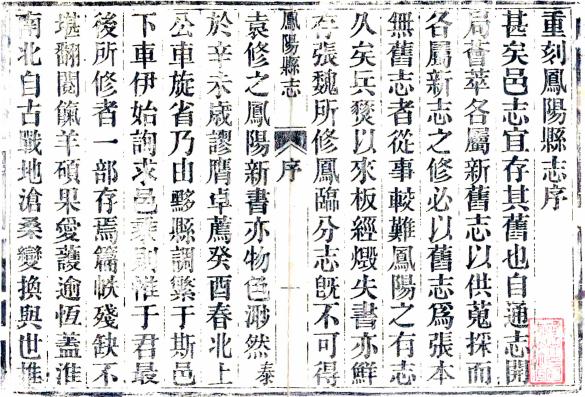 重刻鳳陽縣志序
甚矣邑志宜存其舊也自通志開
局薈萃各屬新舊志以供蒐採而
各屬新志之修必以舊志爲張本
無舊志者從事較難鳳陽之有志
久矣兵燹以來板經燬失書亦鮮
存張魏所修鳳臨分志旣不可得
鳳陽縣志
序
一
袁修之鳳陽新書亦物色渺然泰
於辛未歲謬膺卓薦癸酉春北上
公車旋省乃由黟縣調繁于斯邑
下車伊始詢求邑乘則惟于君最
後所修者一部存焉篇帙殘缺不
堪翻閱餼羊碩果愛護逾恆蓋淮
南北自古戰地滄桑變換與世推